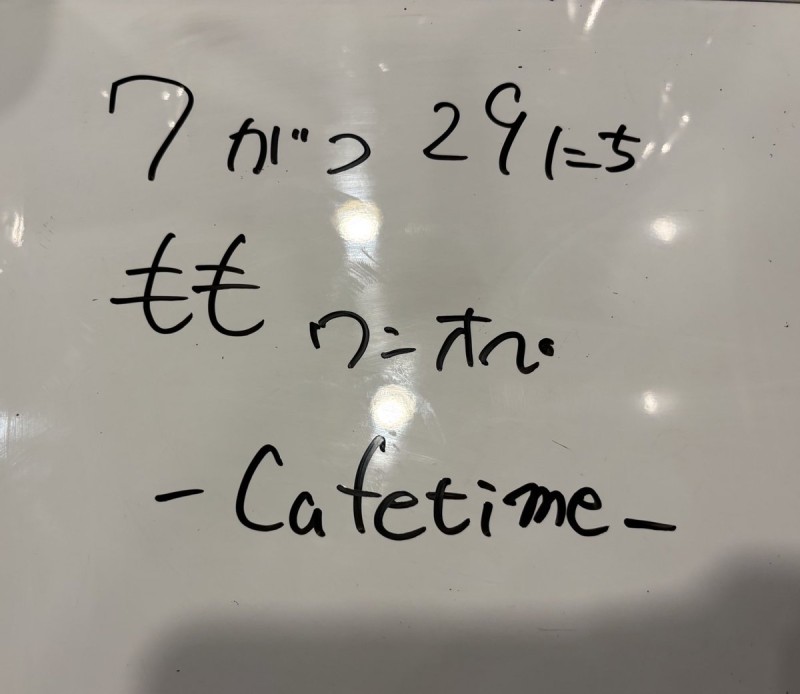 7がつ29にち
もも ワンオペ
- Cafetime -